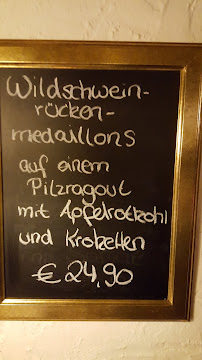 Wildschwein-
rücken-
medaillons
auf einem
Pilzragout
mit Apfelrotkohl
und Kroketten
€ 24,90